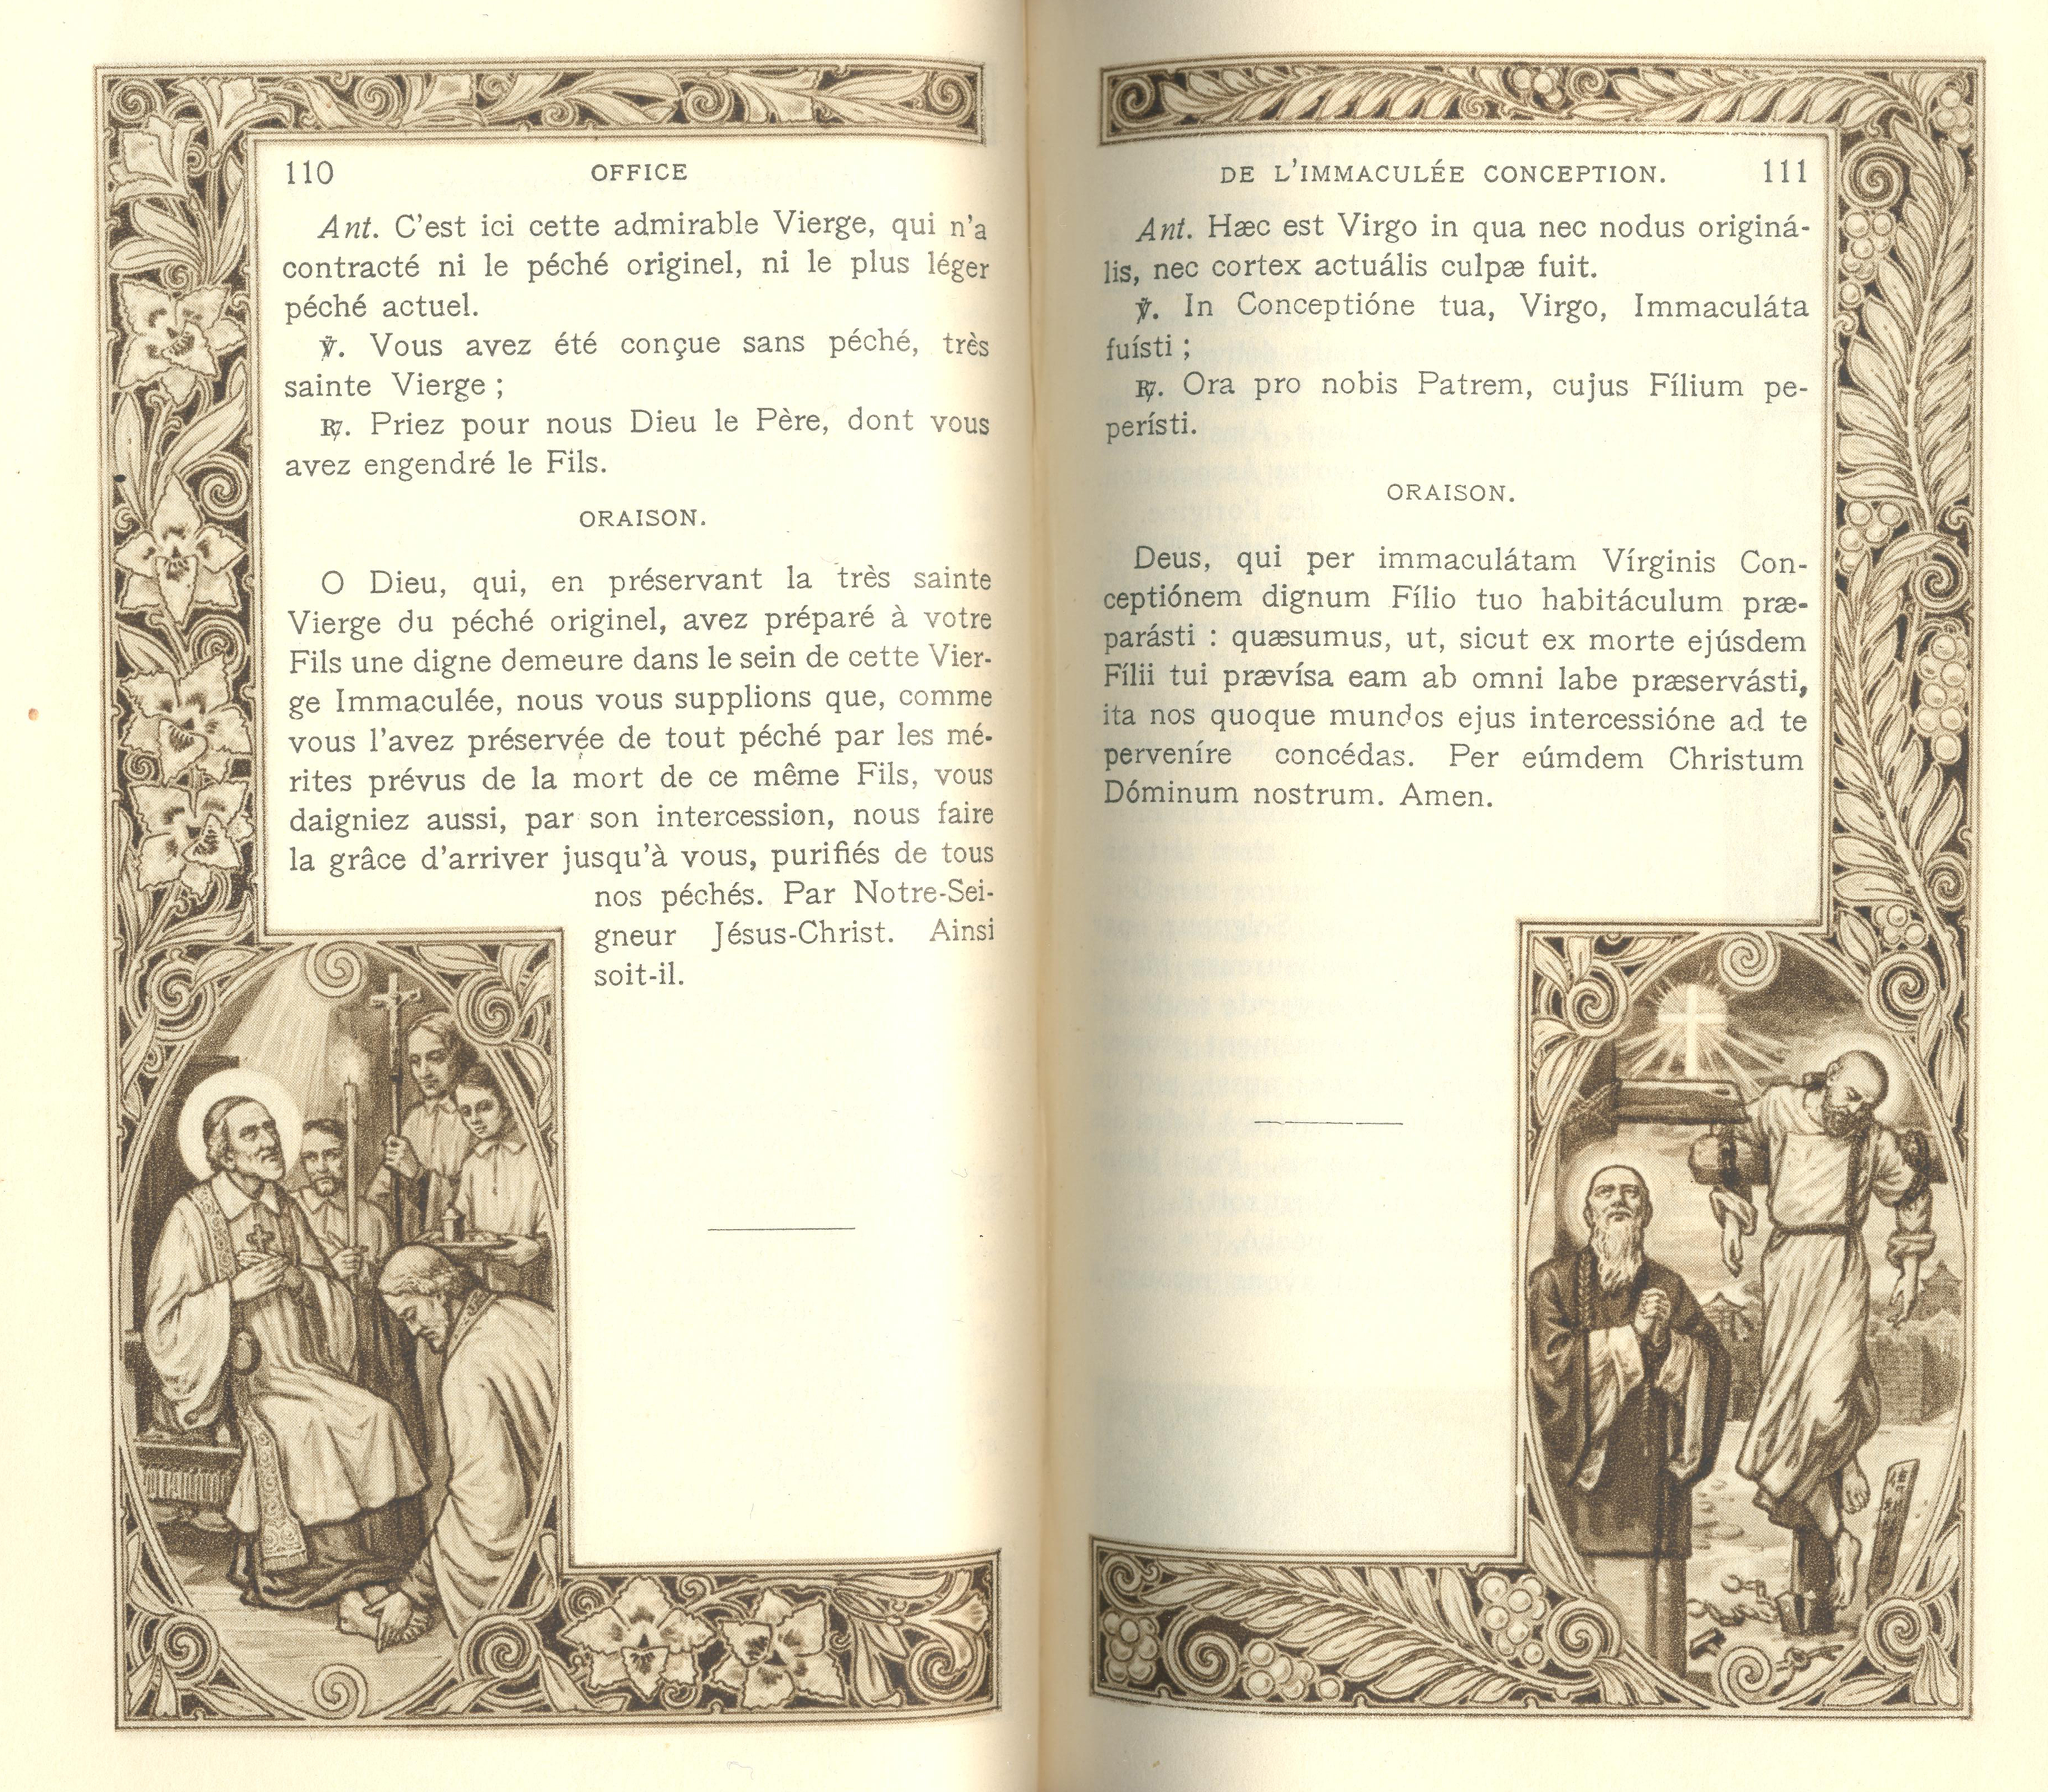 110 OFFICE
Ant. C'est ici cette admirable Vierge, qui n'a
contracté ni le péché originel, ni le plus léger
péché actuel.
℣. Vous avez été conçue sans péché, très
sainte Vierge ;
℟. Priez pour nous Dieu le Père, dont vous
avez engendré le Fils.
ORAISON.
O Dieu, qui, en préservant la très sainte
Vierge du péché originel, avez préparé à votre
Fils une digne demeure dans le sein de cette Vier-
ge Immaculée, nous vous supplions que, comme
vous l'avez préservée de tout péché par les mé-
rites prévus de la mort de ce même Fils, vous
daigniez aussi, par son intercession, nous faire
la grâce d'arriver jusqu'à vous, purifiés de tous
nos péchés. Par Notre-Sei-
gneur Jésus-Christ. Ainsi
soit-il.
DE L'IMMACULÉE CONCEPTION. 111
Ant. Hæc est Virgo in qua nec nodus originá-
lis, nec cortex actuális culpæ fuit.
℣. In Conceptióne tua, Virgo, Immaculáta
fuísti ;
℟. Ora pro nobis Patrem, cujus Fílium pe-
perísti.
ORAISON.
Deus, qui per immaculátam Vírginis Con-
ceptiónem dignum Fílio tuo habitáculum præ-
parásti : quæsumus, ut, sicut ex morte ejúsdem
Fílii tui prævísa eam ab omni labe præservásti,
ita nos quoque mundos ejus intercessióne ad te
perveníre concédas. Per eúmdem Christum
Dóminum nostrum. Amen.